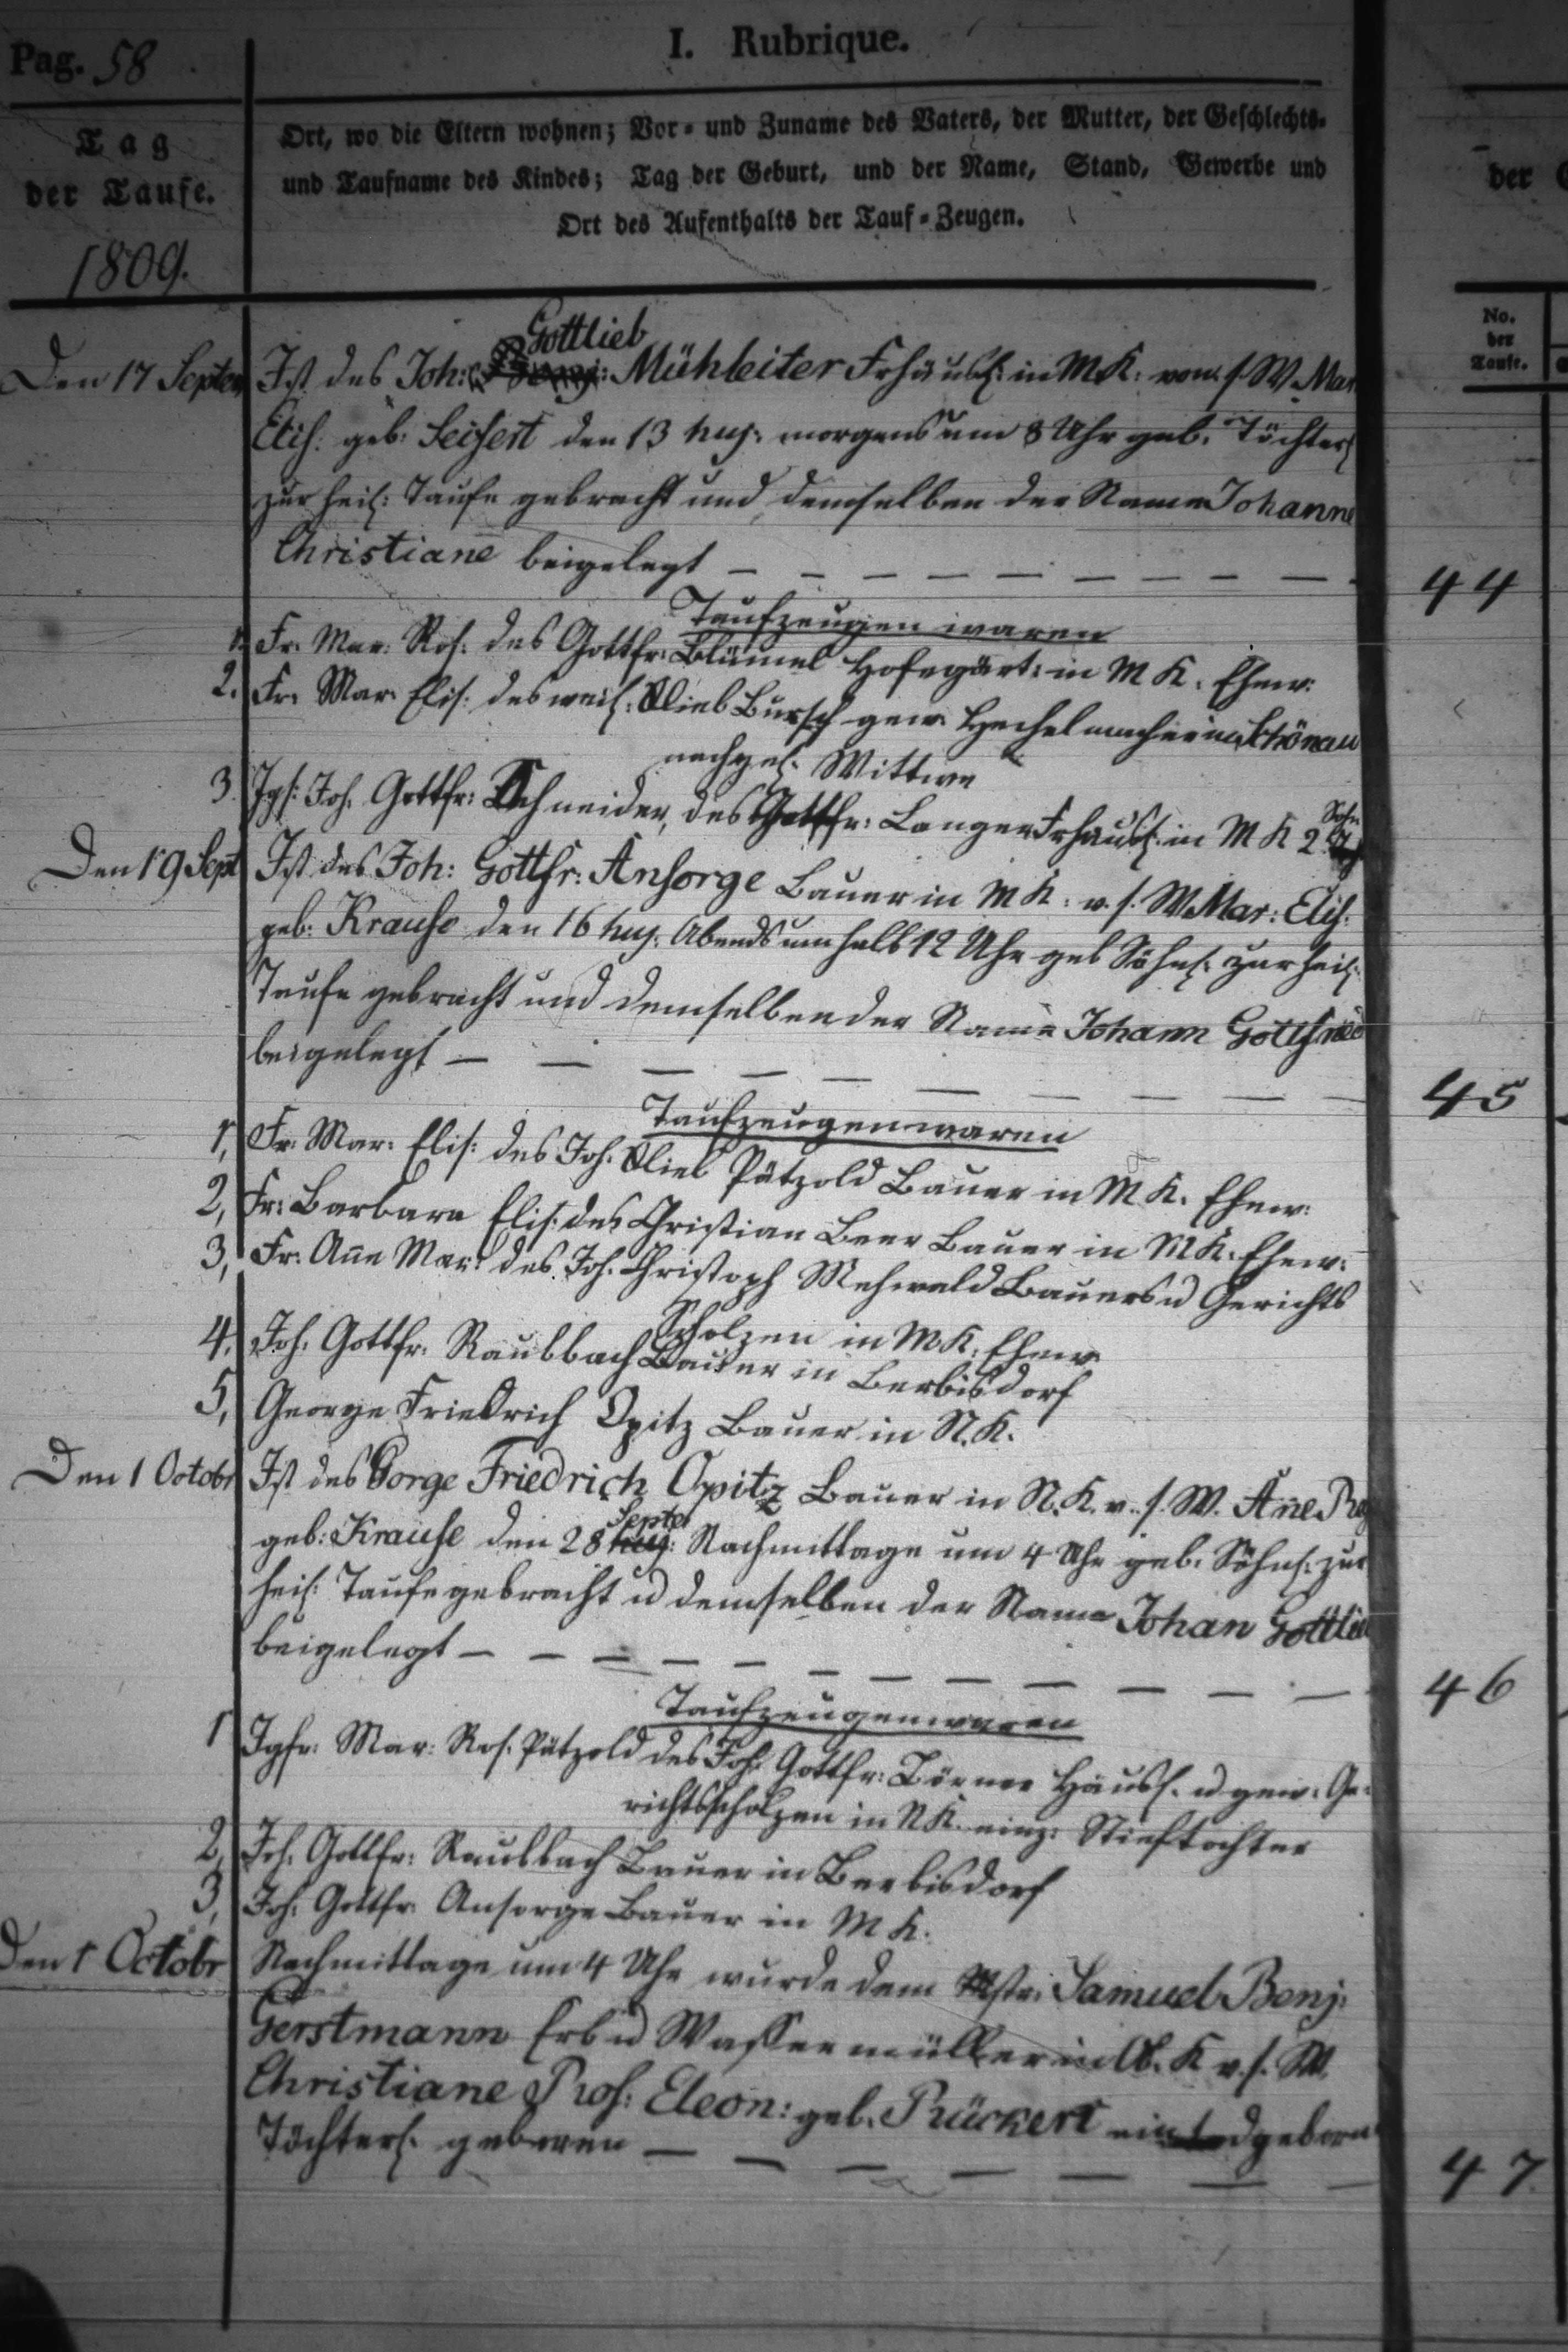 Pag. 58
I. Rubrique.
Tag
der Taufe.
1809.
Ort, wo die Eltern wohnen; Vor- und Zuname des Vaters, der Mutter, der Geschlechts-
und Taufname des Kindes; Tag der Geburt, und der Name, Stand, Gewerbe und
Ort des Aufenthalts der Tauf-Zeugen.
der
No.
der
Taufe.
Gottlieb
Den 17 Septer Ist des Joh: Benj: Mühleiter Frhäusl: in M K: von s. W. Mar
Elis: geb: Seifert den 13 huj: morgens um 8 Uhr geb. Töchterl
zur heil: Taufe gebracht und demselben der Name Johanne
Christiane beigelegt — — — — — — — — — — 44
Taufzeugen waren
1. Fr. Mar: Ros: des Gottfr: Blümel Hofegärt: in M K. Ehew:
2. Fr. Mar: Elis: des weil: Glieb Bursch gew. Hechelmacher in Schönau
nachgel. Wittwe
3. Igs: Joh. Gottfr: Schneider, des Gottfr: Langer Frhäusl: in M K 2
Sohn
Den 19 Sept Ist des Joh: Gottfr: Ansorge Bauer in M K: v. s. W. Mar: Elis:
geb: Krause den 16 huj. Abends um halb 12 Uhr geb Söhnl: zur heil:
Taufe gebracht und demselben der Name Johann Gottfried
beigelegt — — — — — — — — — — 45
Taufzeugen waren
1, Fr. Mar: Elis: des Joh. Glieb Pätzold Bauer in M K. Ehew:
2, Fr: Barbara Elis: des Christian Beer Bauer in M K. Ehew:
3, Fr. Anne Mar: des Joh. Christoph Mehwald Bauers u Gerichts
Scholzen in M K: Ehew
4, Joh. Gottfr. Raubbach Bauer in Berbisdorf
5, George Friedrich Opitz Bauer in N. K.
Den 1 Octobr Ist des Gorge Friedrich Opitz Bauer in N. K. v. s. W. Anne Ros
Septer
geb: Krause den 28 huj: Nachmittage um 4 Uhr geb. Söhnl: zur
heil: Taufe gebracht u demselben der Name Johan Gottlieb
beigelegt — — — — — — — — — — 46
Taufzeugen waren
1 Jgfr: Mar: Ros. Pätzold des Joh Gottfr: Börner Häusl. u gew: Ge-
richtsscholzen in N K. einz: Stieftochter
2, Joh. Gottfr: Raubbach Bauer in Berbisdorf
3, Joh. Gottfr. Ansorge Bauer in M K.
Den 1 Octobr Nachmittage um 4 Uhr wurde dem Mstr. Samuel Benj:
Gerstmann Erb u Wassermüller in Ob. K v. s. W.
Christiane Ros: Eleon: geb. Rückert ein todgeborne
Töchterl. geboren — — — — — — — 47